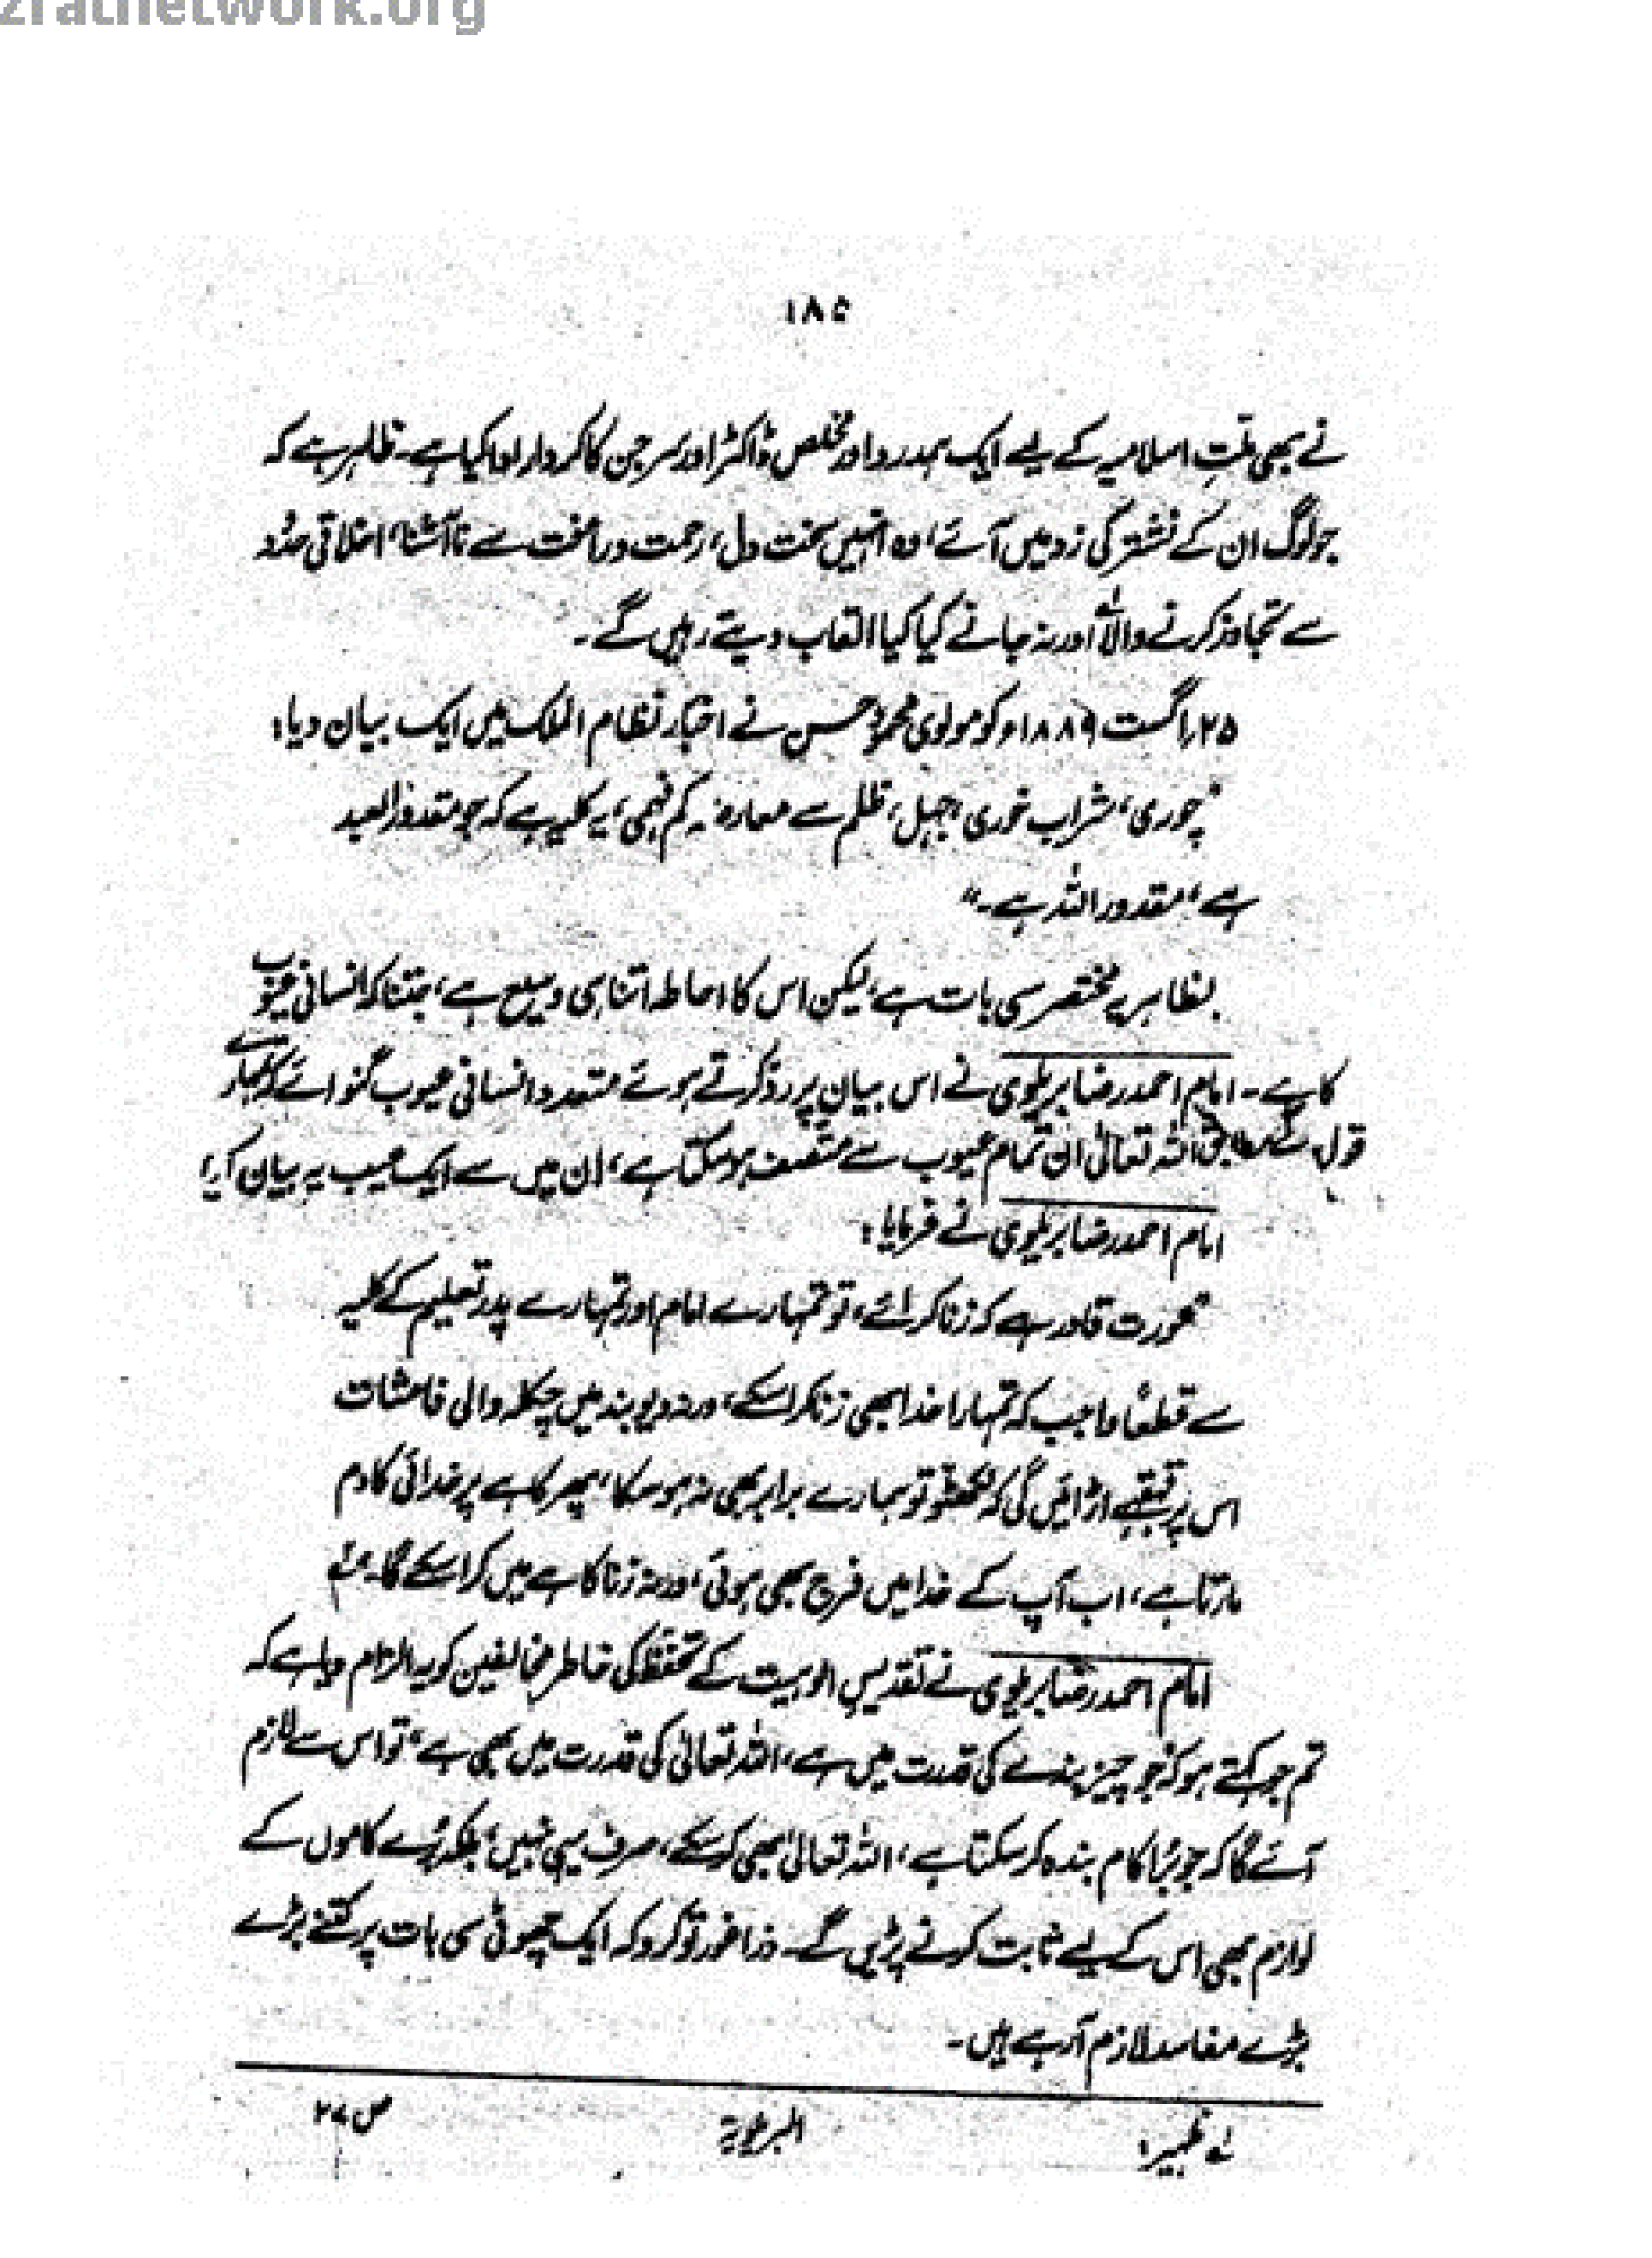 zratnetwork.org
۱۸۵
نے بھی ملتِ اسلامیہ کے لیے ایک ہمدرد اور مخلص ڈاکٹر اور سرجن کا کردار ادا کیا ہے۔ ظاہر ہے کہ
جو لوگ ان کے نشتر کی زد میں آئے، وہ انہیں سخت دل، رحمت و رأفت سے ناآشنا، اخلاقی حدود
سے تجاوز کرنے والا اور نہ جانے کیا کیا القاب دیتے رہیں گے۔
۲۵؍ اگست ۱۸۸۹ء کو مولوی محمود حسن نے اخبار نظام الملک میں ایک بیان دیا:
"چوری، شراب خوری، جہل، ظلم سے معارضہ کم فہمی، یہ کلیہ ہے کہ جو مقدور العبد
ہے، مقدور اللہ ہے۔"
بظاہر یہ مختصر سی بات ہے، لیکن اس کا احاطہ اتنا ہی وسیع ہے، جتنا کہ انسانی عیوب
کا ہے۔ امام احمد رضا بریلوی نے اس بیان پر رد کرتے ہوئے متعدد انسانی عیوب گنوائے کہ تمہارے
قول کے مطابق اللہ تعالیٰ ان تمام عیوب سے متصف ہو سکتا ہے، ان میں سے ایک عیب یہ بیان کیا؛
امام احمد رضا بریلوی نے فرمایا:
"عورت قادر ہے کہ زنا کرائے، تو تمہارے امام اور تمہارے پدر تعلیم کے کلیہ
سے قطعاً واجب کہ تمہارا خدا بھی زنا کرا سکے، ورنہ دیوبند میں چکلہ والی فاحشات
اس پر قہقہے اڑائیں گی کہ نکھٹو تو ہمارے برابر بھی نہ ہو سکا، پھر کاہے پر خدائی کا دم
مارتا ہے، اب آپ کے خدا میں فرج بھی ہوئی، ورنہ زنا کاہے میں کرا سکے گا۔
امام احمد رضا بریلوی نے تقدیسِ الوہیت کے تحفظ کی خاطر مخالفین کو یہ الزام دیا ہے کہ
تم جو کہتے ہو کہ جو چیز بندے کی قدرت میں ہے، اللہ تعالیٰ کی قدرت میں بھی ہے، تو اس سے لازم
آئے گا کہ جو بُرا کام بندہ کر سکتا ہے، اللہ تعالیٰ بھی کر سکے، صرف یہی نہیں، بلکہ بُرے کاموں کے
لوازم بھی اس کے لیے ثابت کرنے پڑیں گے۔ ذرا غور تو کرو کہ ایک چھوٹی سی بات پر کتنے بڑے
بڑے مفاسد لازم آ رہے ہیں۔
لہ ظہیر: البریلویۃ ص ۲۷